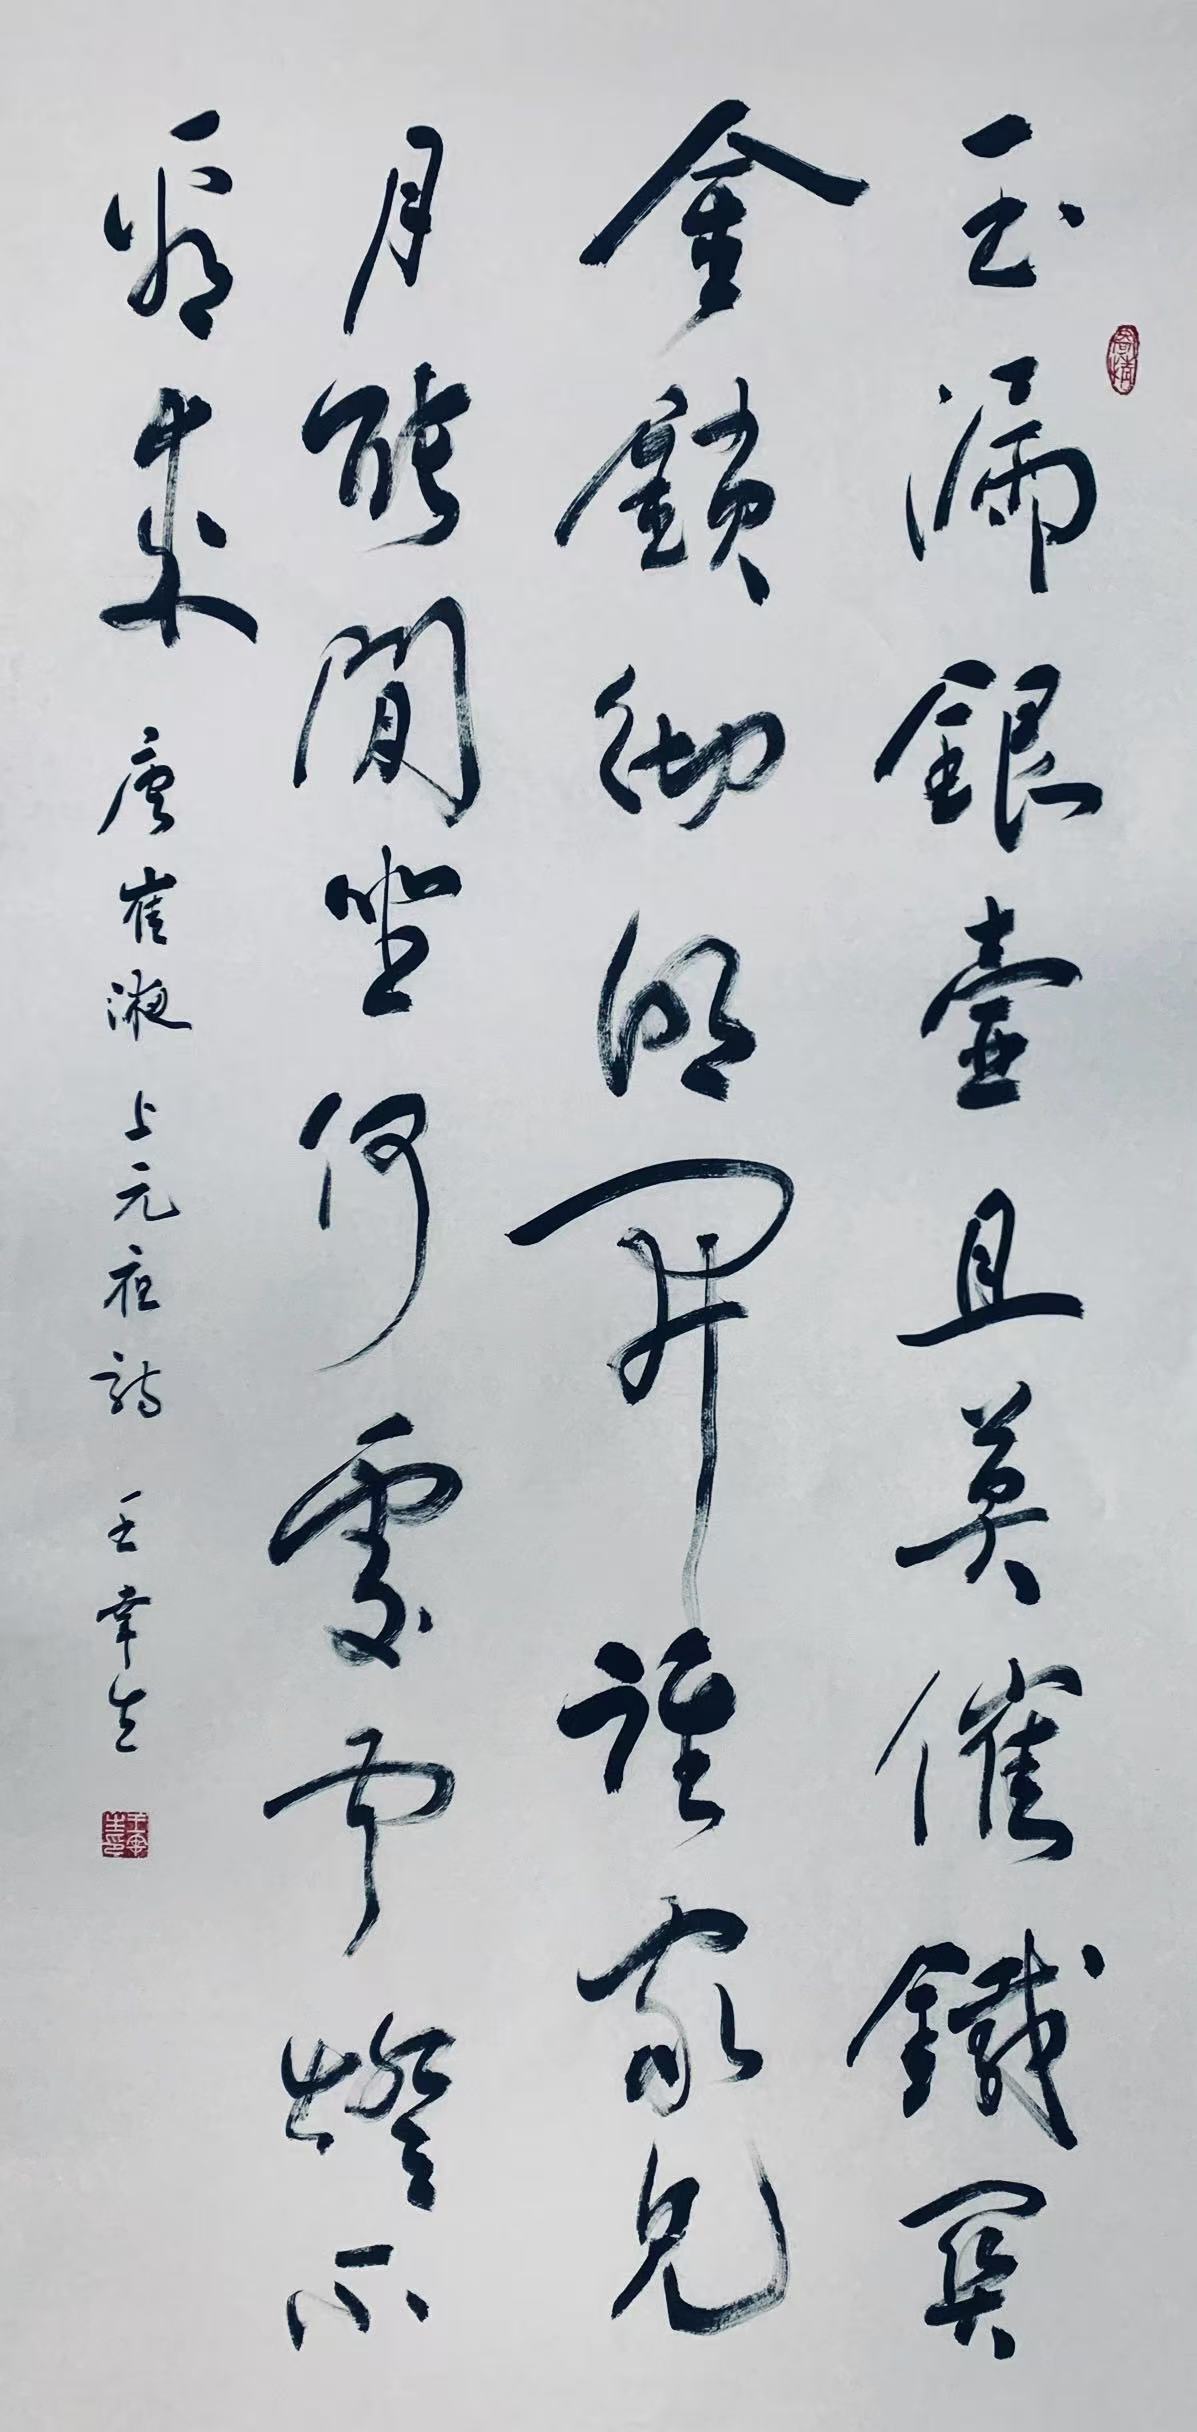 玉漏銀壺且莫催鐵關
金鎖徹明開誰家見
月能閒坐何處聞燈不
看來 唐崔液上元夜詩 王幸生